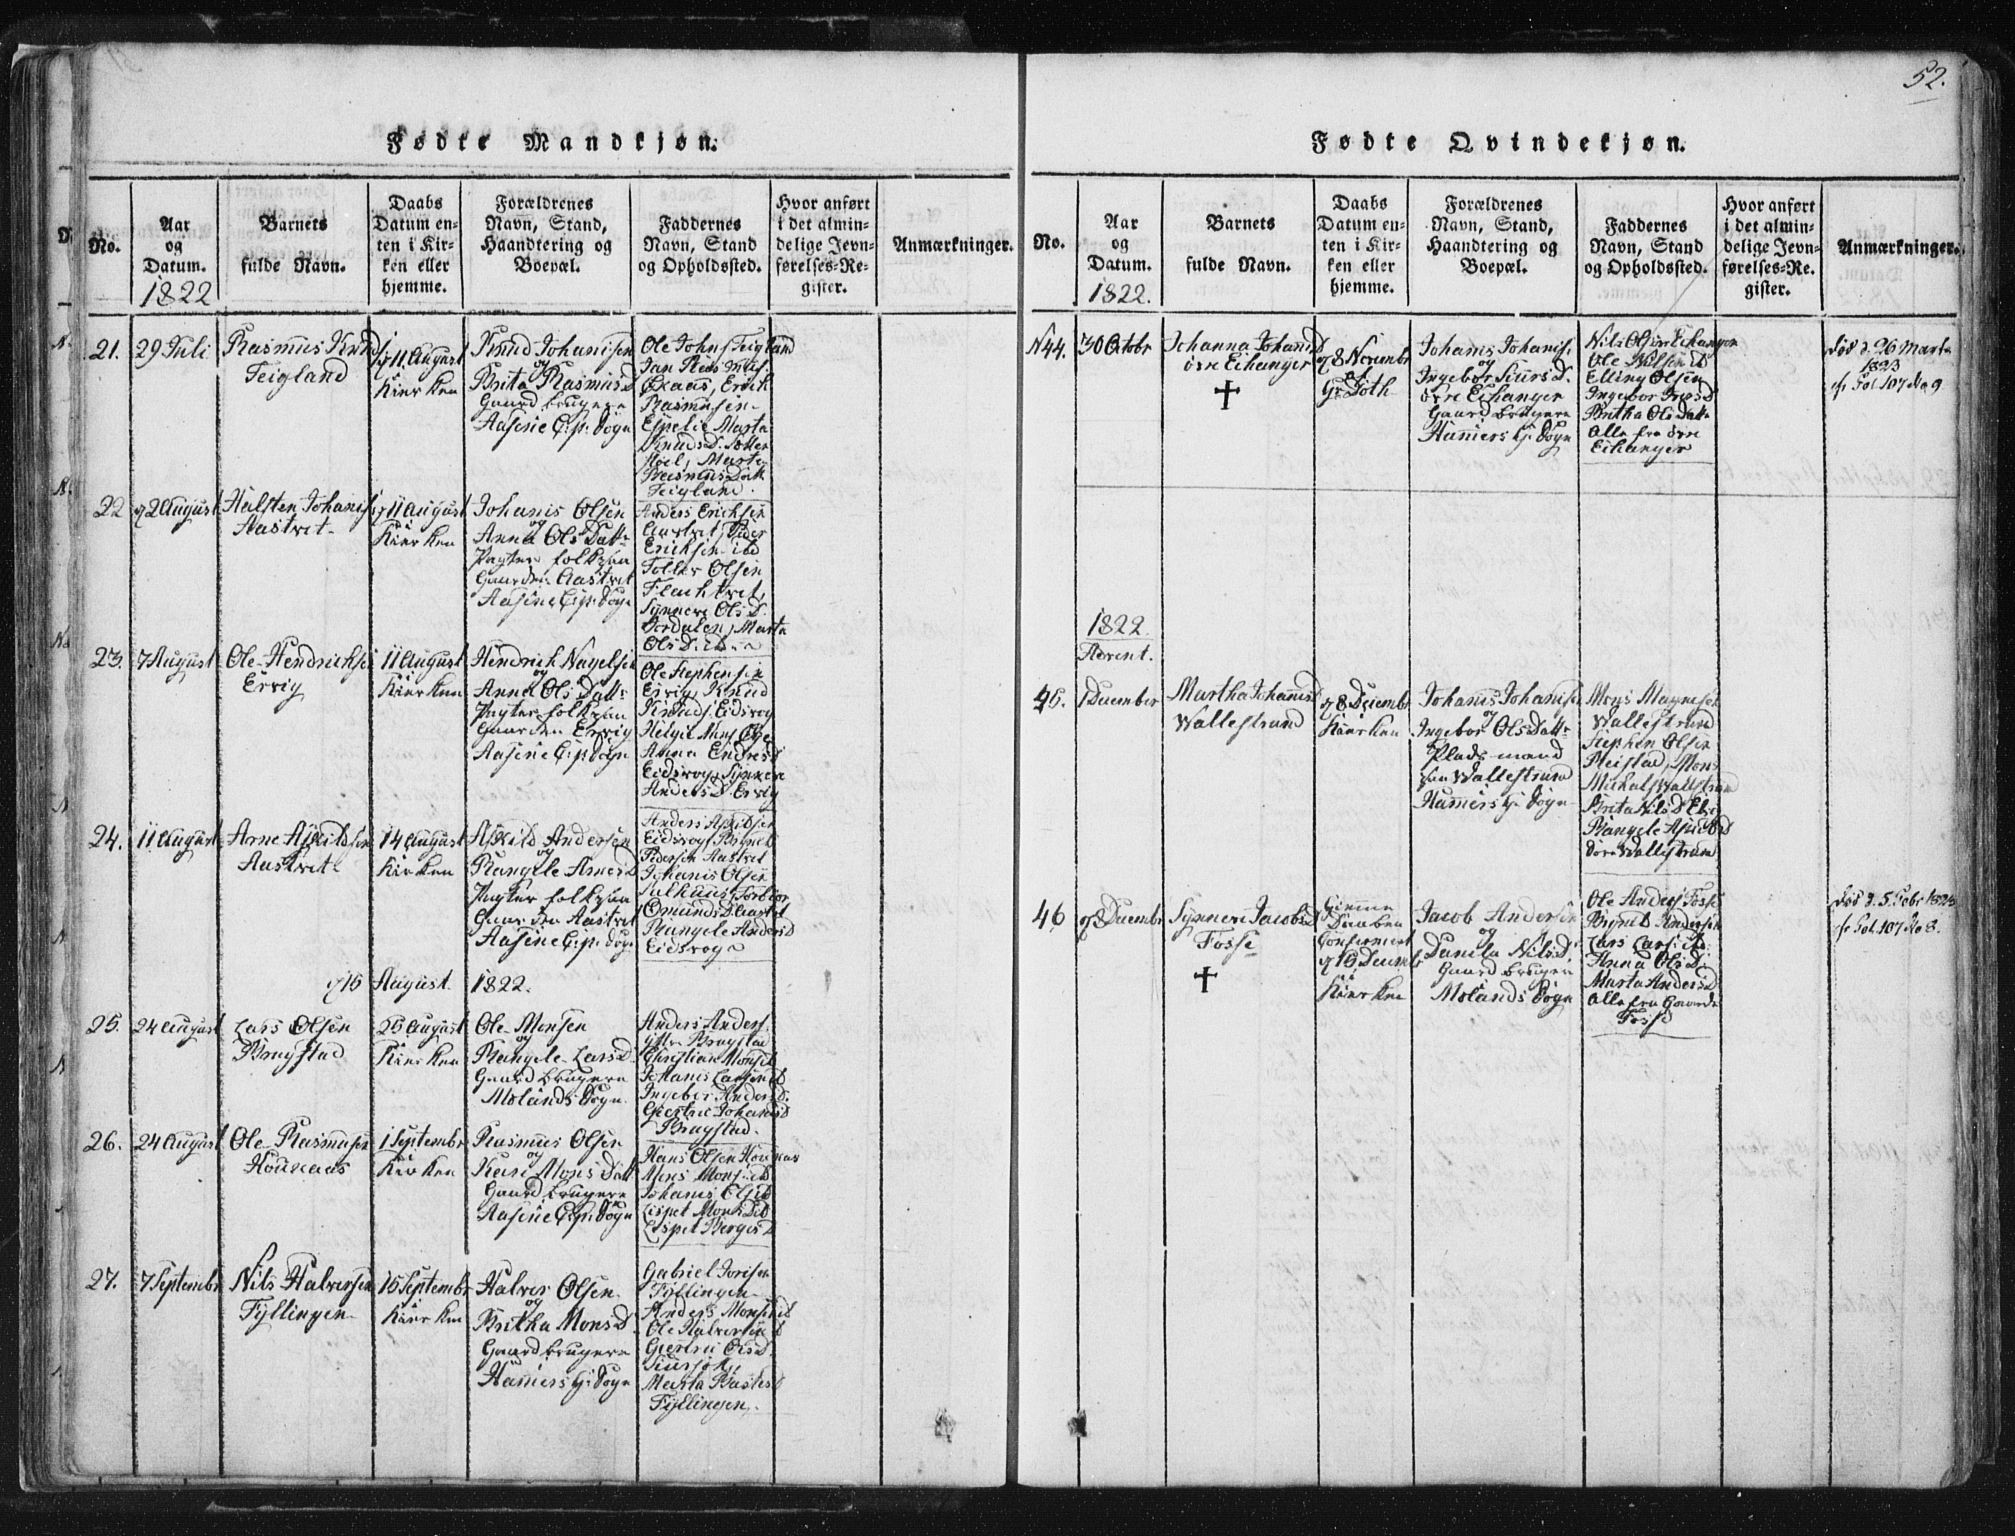 52.
Fødte Mandkjøn.
No.
Aar
og
Datum.
1822
Barnets
fulde Navn.
Daabs
Datum en-
ten i Kir-
ken eller
hjemme.
Forældrenes
Navn, Stand,
Haandtering og
Boepæl.
Faddernes
Navn, Stand
og Opholdssted.
Hvor anført
i det almin-
delige Jevn-
førelses-Re-
gister.
Anmærkninger.
21.
29 Juli
Rasmus Knuds
Teigland
11 August
Kierken
Knud Johanisen
og
Brita Rasmusd
Gaardbrugere
Aasene C:p: Sogn
Ole Johns Teigland
Jan Rasmus.
Erich
Rasmusen
Espelie Marta
Knudsd.
Marte
Rasmus Datt
Teigland.
22
2 August
Halsten Johanis
Aastvet
11 August
Kierken
Johanis Olsen
og
Anna Ols Datt
Pagter folk paa
Gaarden Aastvet
Aasene C:p: Sogn
Anders Erichsen
Aastvet, Peder
Erichsen ibd
Olsen
Synneve Ols D.
Jordalen, Marta
Ols D. ibd
23.
7 August
Ole Hendrichsen
Ervig
11 August
Kierken
Hendrich Nagelsen
og
Anna Ols Datt
Pagter folk paa
Gaarden Ervig
Aasene C:p: Sogn
Ole Stephensen
Ervig, Knud
Knuds. Eidsvog
Helge
Anna Endresd
Eidsvog, Synneve
Anders D. Ervig
24.
11 August
Arne Askildsen
Aastvet
14 August
Kierken
Askild Andersen
og
Rangele Arnes D
Pagter folk paa
Gaarden Aastvet
Aasene C:p: Sogn
Anders Askildsen
Eidsvog, Brynild
Pedersen Aastvet
Johanis Olsen
Torbior
Omunds D. Aastvet
Rangele Anders D
Eidsvog
15 August 1822.
25.
24 August
Lars Olsen
Brugstad
25 August
Kierken
Ole Monsen
og
Rangele Larsd
Gaardbrugere
Molands Sogn.
Anders Anders.
Brugstad
Christian Mons ibd
Johanis Larsen ibd
Ingebor Anders D.
Giertrue Johanis D
Brugstad.
26.
24 August
Ole Rasmusen
Houkaas
1 Septembr
Kierken
Rasmus Olsen
og
Kari Mons Datt
Gaardbrugere
Aasene C:p: Sogn
Hans Olsen Houkaas
Mons Mons. ibd
Johanis Ols. ibd
Lispet Mons D ibd
Lispet Berges D
27.
7 Septembr
Nils Halversen
Fyllingen
15 Septembr
Kierken
Halver Olsen
og
Britha Monsd.
Gaardbrugere
Hammers h: Sogn
Gabriel Joris
Fyllingen
Anders Monsen ibd
Ole Halversen ibd
Giertru Olsd
Marta
Fyllingen.
Fødte Qvindekjøn.
No.
Aar
og
Datum.
1822.
Barnets
fulde Navn.
Daabs
Datum en-
ten i Kir-
ken eller
hjemme.
Forældrenes
Navn, Stand,
Haandtering og
Boepæl.
Faddernes
Navn, Stand
og Opholdssted.
Hvor anført
i det almin-
delige Jevn-
førelses-Re-
gister.
Anmærkninger.
N44.
30 Octobr
Johanna Johanisd
øvre Eikanger
8 Novembr
Johanis Johanis.
og
Ingebor Siursd.
øvre Eikanger
Gaardbrugere
Hammers h: Sogn
Nils Olsen Eikanger
Ole Nilsen ibd
Elling Olsen
Ingebor
Britha Ols Datt
Alle fra øvre
Eikanger
Død d. 26 Marts
1823
cfr Fol. 107 No 9
1822
Advent.
45.
1 December
Martha Johanisd
Vallestrand
8 Decembr
Kierken
Johanis Johanisen
og
Ingebor Ols Datt
Pladsmand
paa Vallestrand
Hammers h: Sogn
Mons Magnesen
Vallestrand
Stephen Olsen
Reistad, Mons
Michals Vallestrand
Brita Nils D
Rangele
Vallestrand
46
8 Decembr
Synneve Jacobsd
Fosse
Daaben
Confirmert
15 Decembr
Kierken
Jacob Andersen
og
Danila Nils D.
Gaardbrugere
Molands Sogn
Ole Anders. Fosse
Brynild Andersen
Lars Lars. ibd.
Anna Ols D.
Marta Anders D
Alle fra Gaarde
Fosse
Død d. 5 Febr 1823
cfr Fol. 107 No 8.